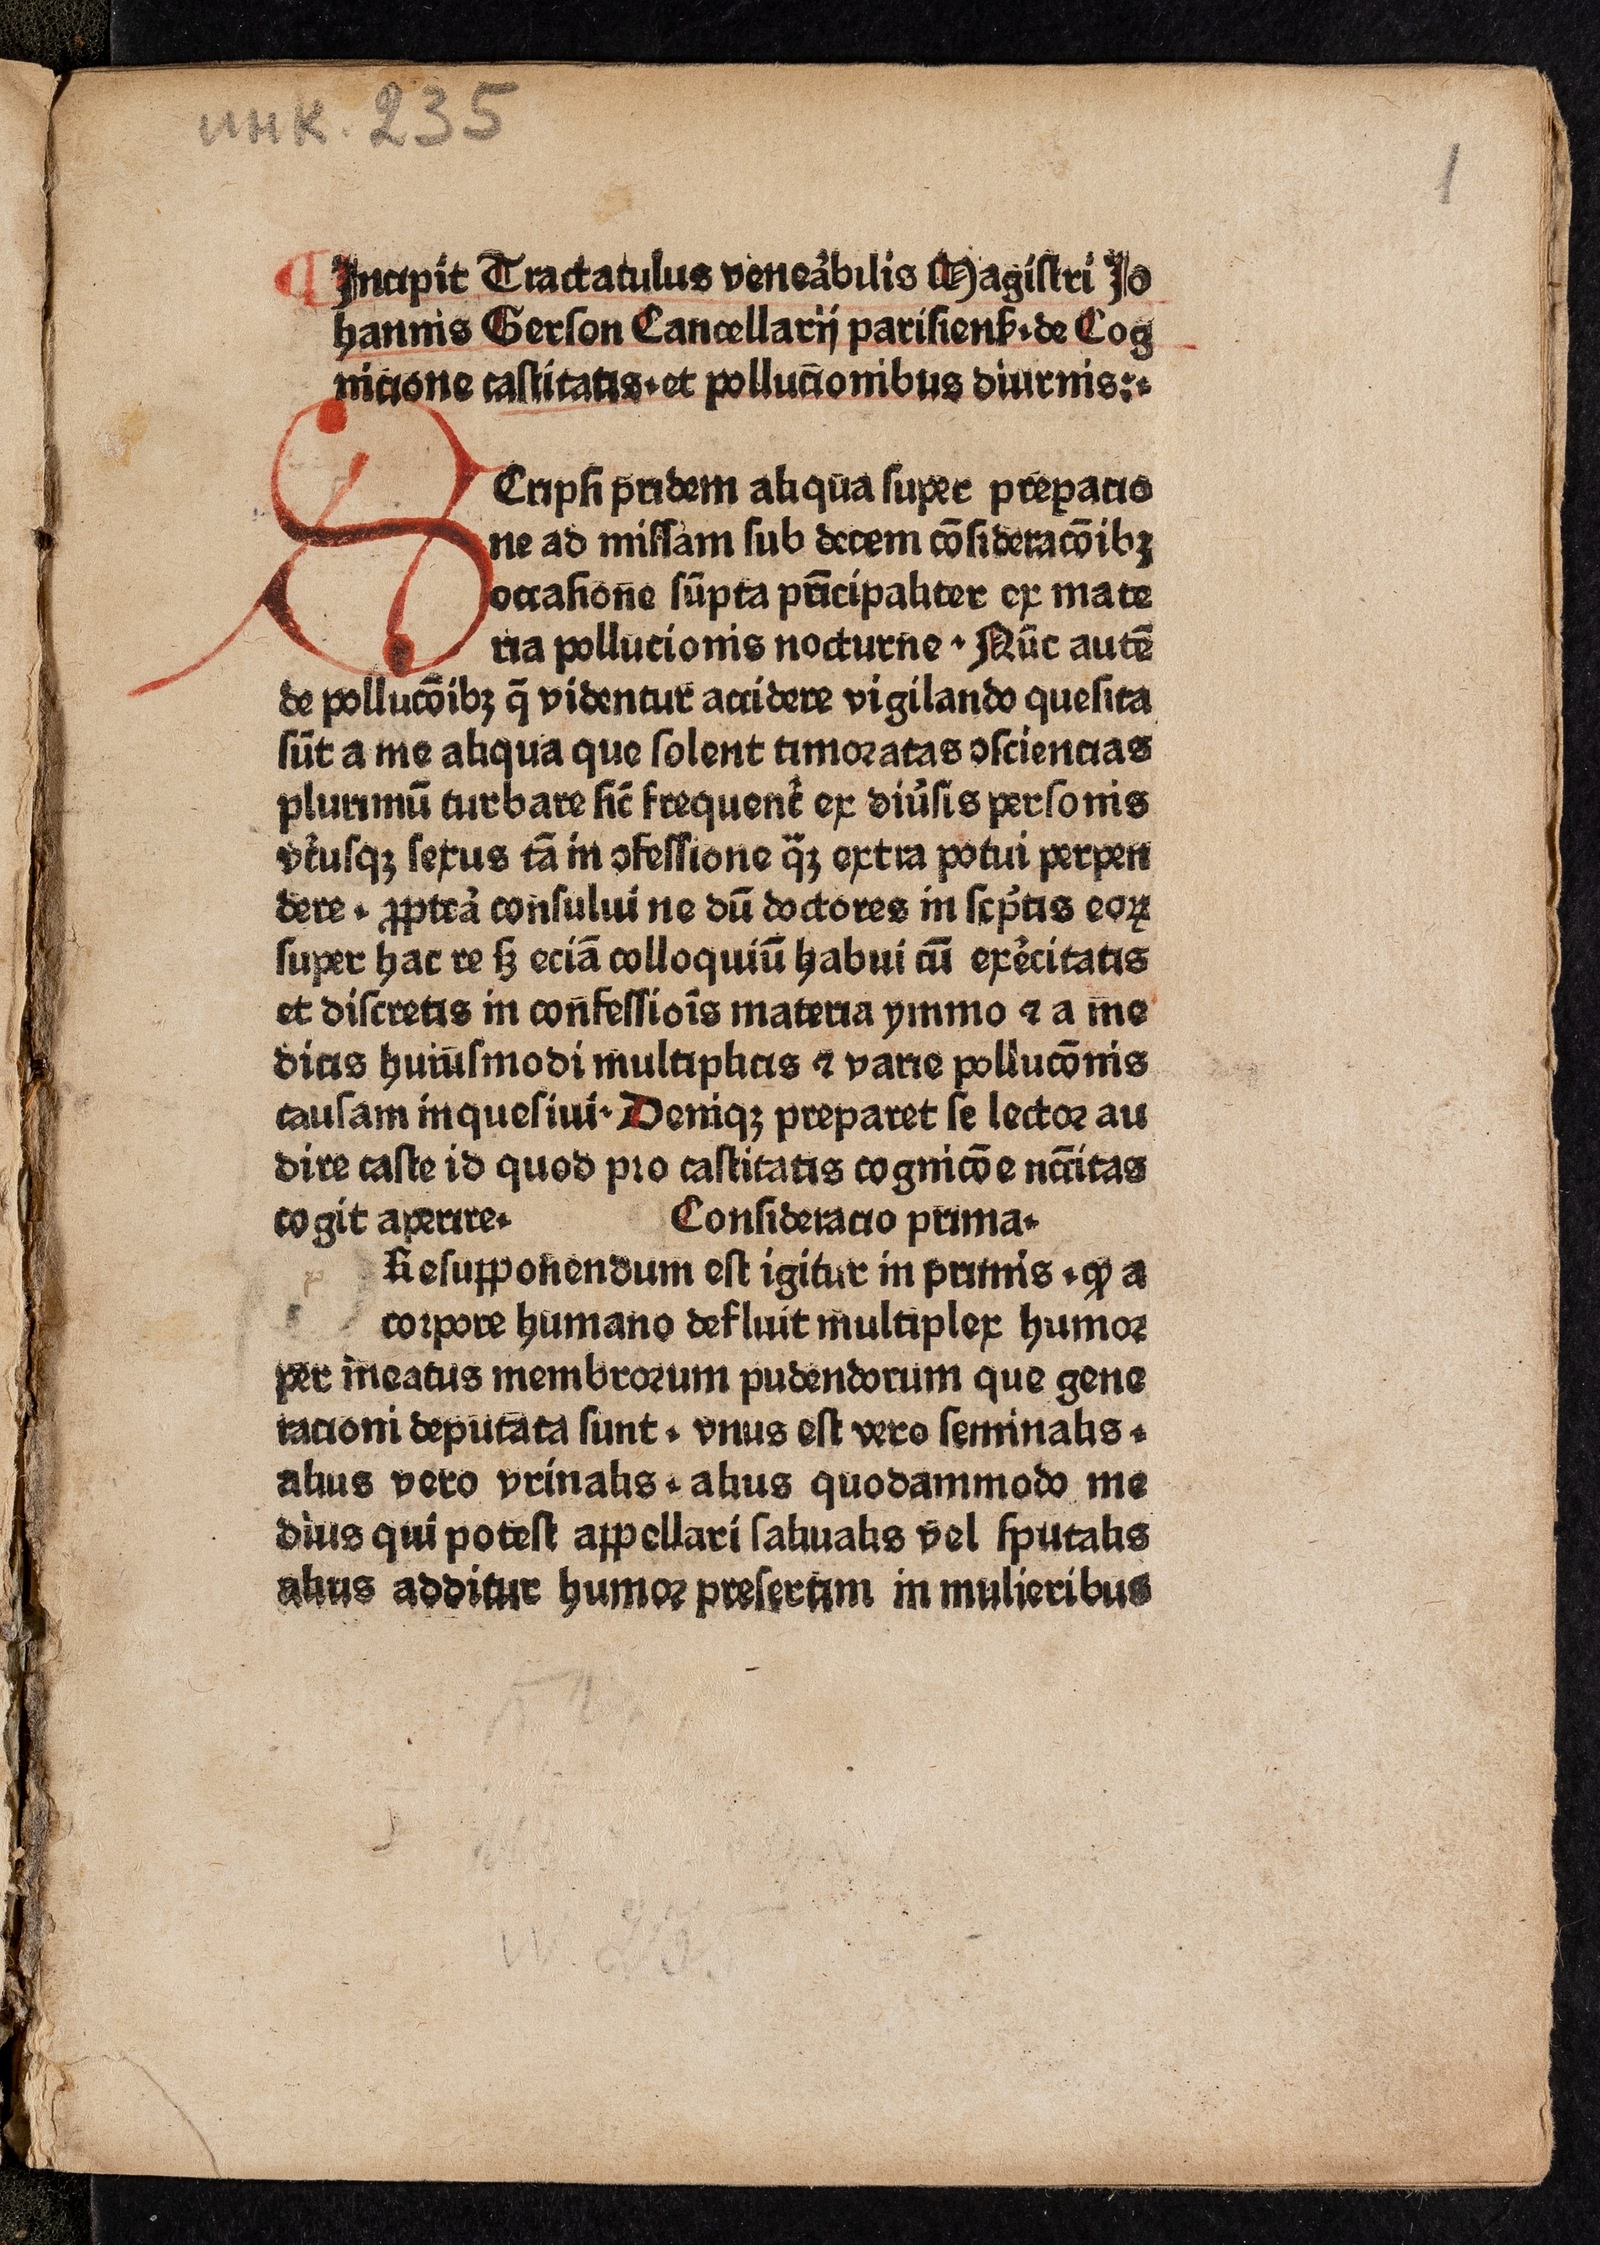 инк. 235
1
Incipit Tractatulus veneãbilis Magiſtri Jo
hannis Gerſon Cancellarij pariſienẜ·de Cog
nicione caſtitatis·et pollucionibus diurnis:·
S Cripſi pridem aliqua̅ super preparacio
ne ad miſſam ſub decem cōſideracōibꝫ
occaſione ſūpta prīcipaliter ex mate
ria pollucionis nocturne · Nūc autē
de pollucōibꝫ q̄ videntur accidere vigilando queſita
ſūt a me aliqua que ſolent timoꝛatas ↄſciencias
plurimū turbare ſic̄ frequent̾ ex diu̾ſis perſonis
vt̾uſqꝫ ſexus tā in ↄfeſſione qᷓꝫ extra potui perpen
dere · ꝓpter̾a conſului ne dū doctores in ſcp̾tis eoꝝ
ſuper hac re ſꝫ eciā colloquiū habui cū exe̾citatis
et diſcretis in confeſſiōis materia ymmo ⁊ a me
dicis huiuſmodi multiplicis ⁊ varie pollucōnis
cauſam inqueſiui· Deniqꝫ preparet ſe lectoꝛ au
dire caſte id quod pꝛo caſtitatis cognicōe nc̄c̄itas
cogit aperire· Conſideracio prima·
Reſupponendum eſt igitur in primis · ꝙ a
coꝛpore humano defluit multiplex humoꝛ
per meatus membroꝛum pudendorum que gene
racioni deputata ſunt · vnus eſt vero ſeminalis ·
alius vero vrinalis · alius quodammodo me
dius qui poteſt appellari ſaliualis vel ſputalis
alius additur humoꝛ preſertim in mulieribus